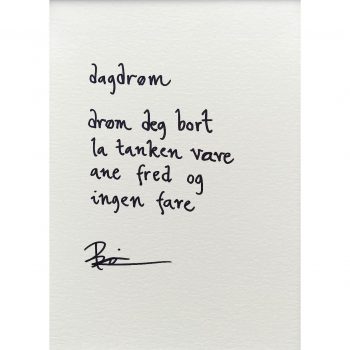 dagdrøm
drøm deg bort
la tanken være
ane fred og
ingen fare